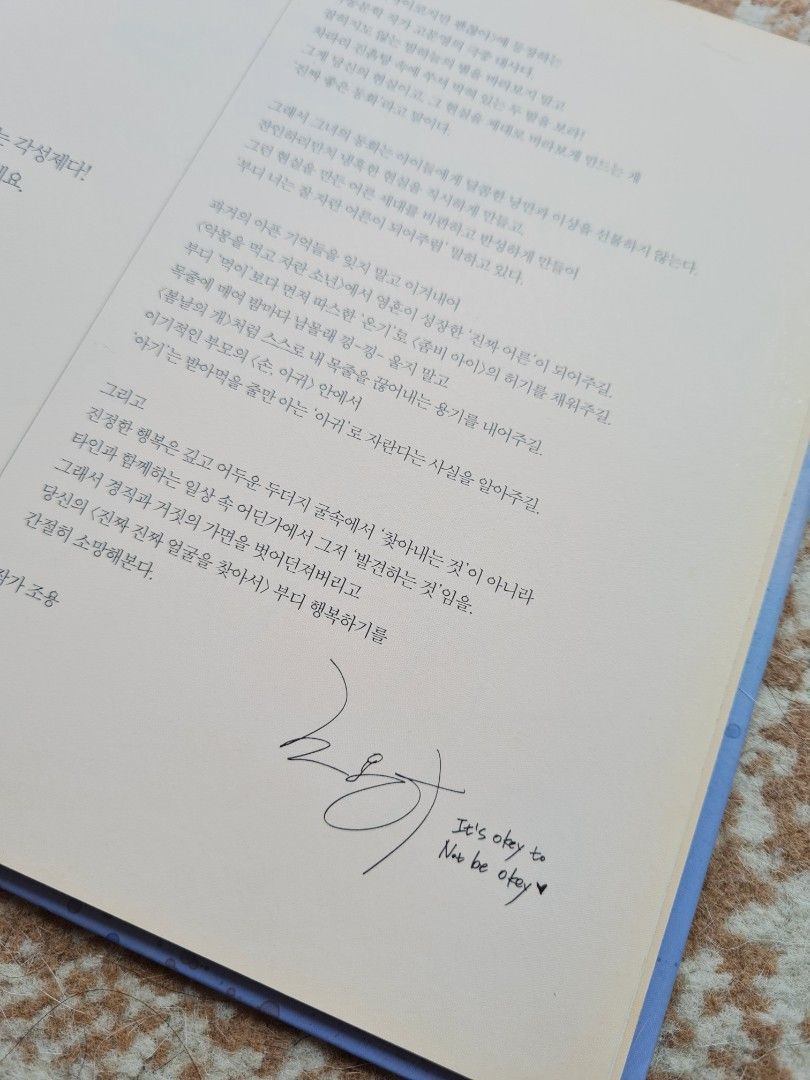 는 각성제다!
세요.
이코지만 괜찮아>에 등장하는
아동문학 작가 고문영의 극중 대사다.
잡히지도 않는 밤하늘의 별을 바라보지 말고
차라리 진흙탕 속에 쑤셔 박혀 있는 두 발을 보라!
그게 당신의 현실이고, 그 현실을 제대로 바라보게 만드는 게
'진짜 좋은 동화'라고 말이다.
그래서 그녀의 동화는 아이들에게 달콤한 낭만과 이상을 선물하지 않는다.
잔인하리만치 냉혹한 현실을 직시하게 만들고,
그런 현실을 만든 어른 세대를 비판하고 반성하게 만들어
'부디 너는 잘 자란 어른이 되어주렴' 말하고 있다.
과거의 아픈 기억들을 잊지 말고 이겨내어
<악몽을 먹고 자란 소년>에서 영혼이 성장한 '진짜 어른'이 되어주길.
부디 '먹이'보다 먼저 따스한 '온기'로 <좀비 아이>의 허기를 채워주길.
목줄에 매여 밤마다 남몰래 낑-낑- 울지 말고
<봄날의 개>처럼 스스로 내 목줄을 끊어내는 용기를 내어주길.
이기적인 부모의 <손, 아귀> 안에서
'아기'는 받아먹을 줄만 아는 '아귀'로 자란다는 사실을 알아주길.
그리고
진정한 행복은 깊고 어두운 두더지 굴속에서 '찾아내는 것'이 아니라
타인과 함께하는 일상 속 어딘가에서 그저 '발견하는 것'임을.
그래서 경직과 거짓의 가면을 벗어던져버리고
당신의 <진짜 진짜 얼굴을 찾아서> 부디 행복하기를
간절히 소망해본다.
작가 조용
It's okey to
Not be okey♥